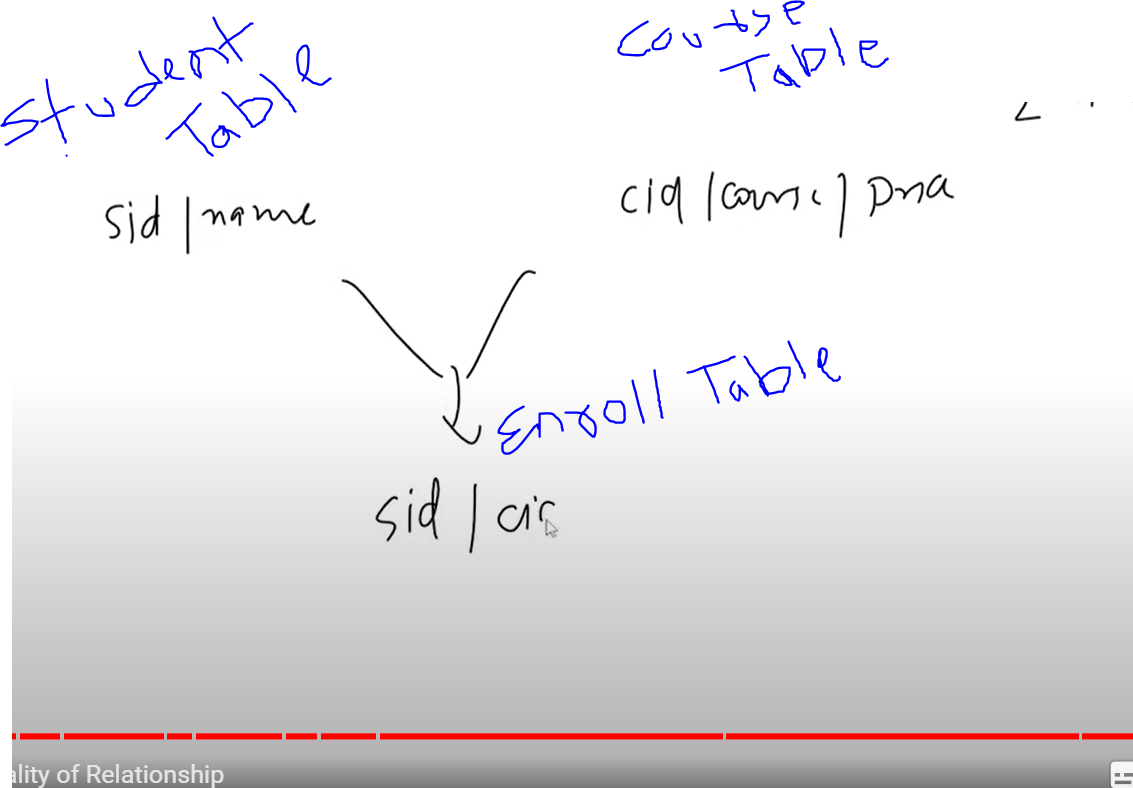 Student
Table
Course
Table
sid | name
cid | course |
Enroll Table
sid | cid
ality of Relationship